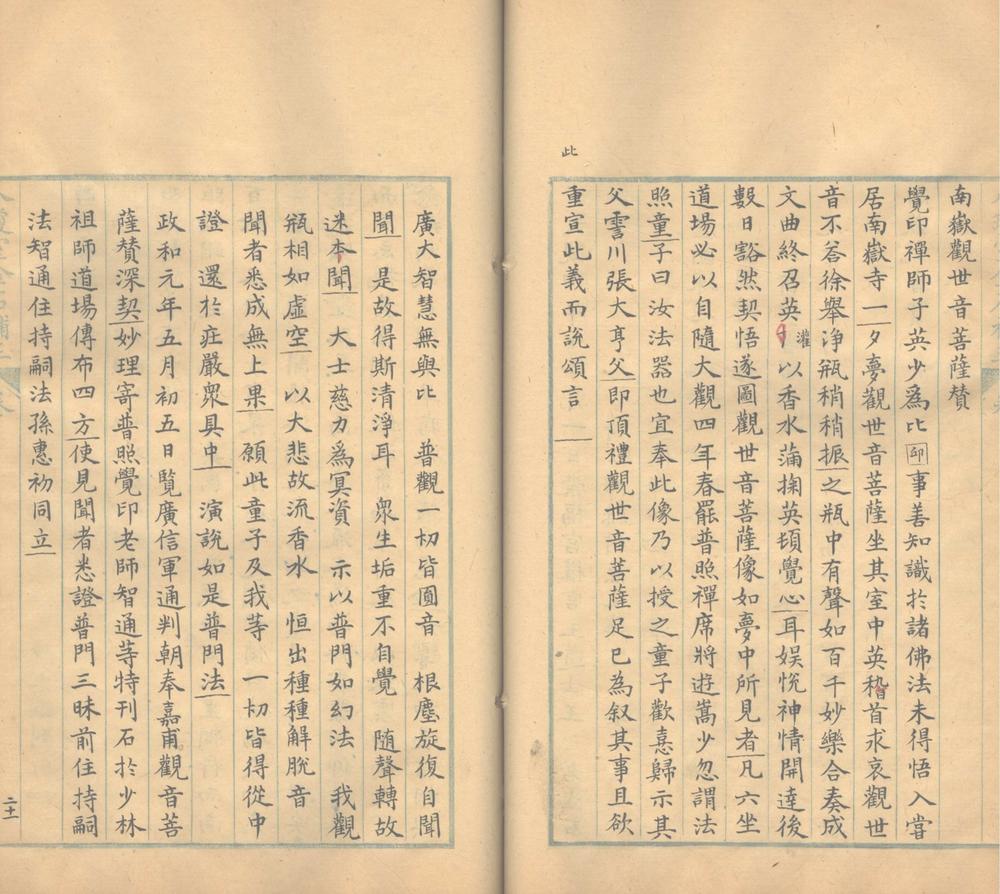 此
南嶽觀世音菩薩赞
覺印禪師子英少爲比卬事善知識於諸佛法未得悟入甞
居南嶽寺一夕夢觀世音菩薩坐其室中英稽首求哀觀世
音不荅徐舉淨瓶稍稍振之瓶中有聲如百千妙樂合奏成
文曲終召英灌以香水蒲掬英頓覺心耳娱恱神情開達後
數日豁然契悟遂圖觀世音菩薩像如夢中所見者凡六坐
道場必以自隨大觀四年春罷普照禪席將逰嵩少忽謂法
照童子曰汝法器也宜奉此像乃以授之童子歡憙歸示其
父霅川張大亨父即頂禮觀世音菩薩足已為叙其事且欲
重宣此義而說頌言
廣大智慧無與比 普觀一切皆圓音 根塵旋復自聞
聞 是故得斯清淨耳 衆生垢重不自覺 随聲轉故
迷本聞 大士慈力爲冥資 示以普門如幻法 我觀
瓶相如虛空 以大悲故流香水 恒出種種解脫音
聞者悉成無上果 願此童子及我等 一切皆得從中
證 還於莊嚴衆具中 演說如是普門法
政和元年五月初五日覽廣信軍通判朝奉嘉甫觀音菩
薩賛深契妙理寄普照覺印老師智通等特刊石於少林
祖師道場傳布四方使見聞者悉證普門三昧前住持嗣
法智通住持嗣法孫惠初同立
二十一